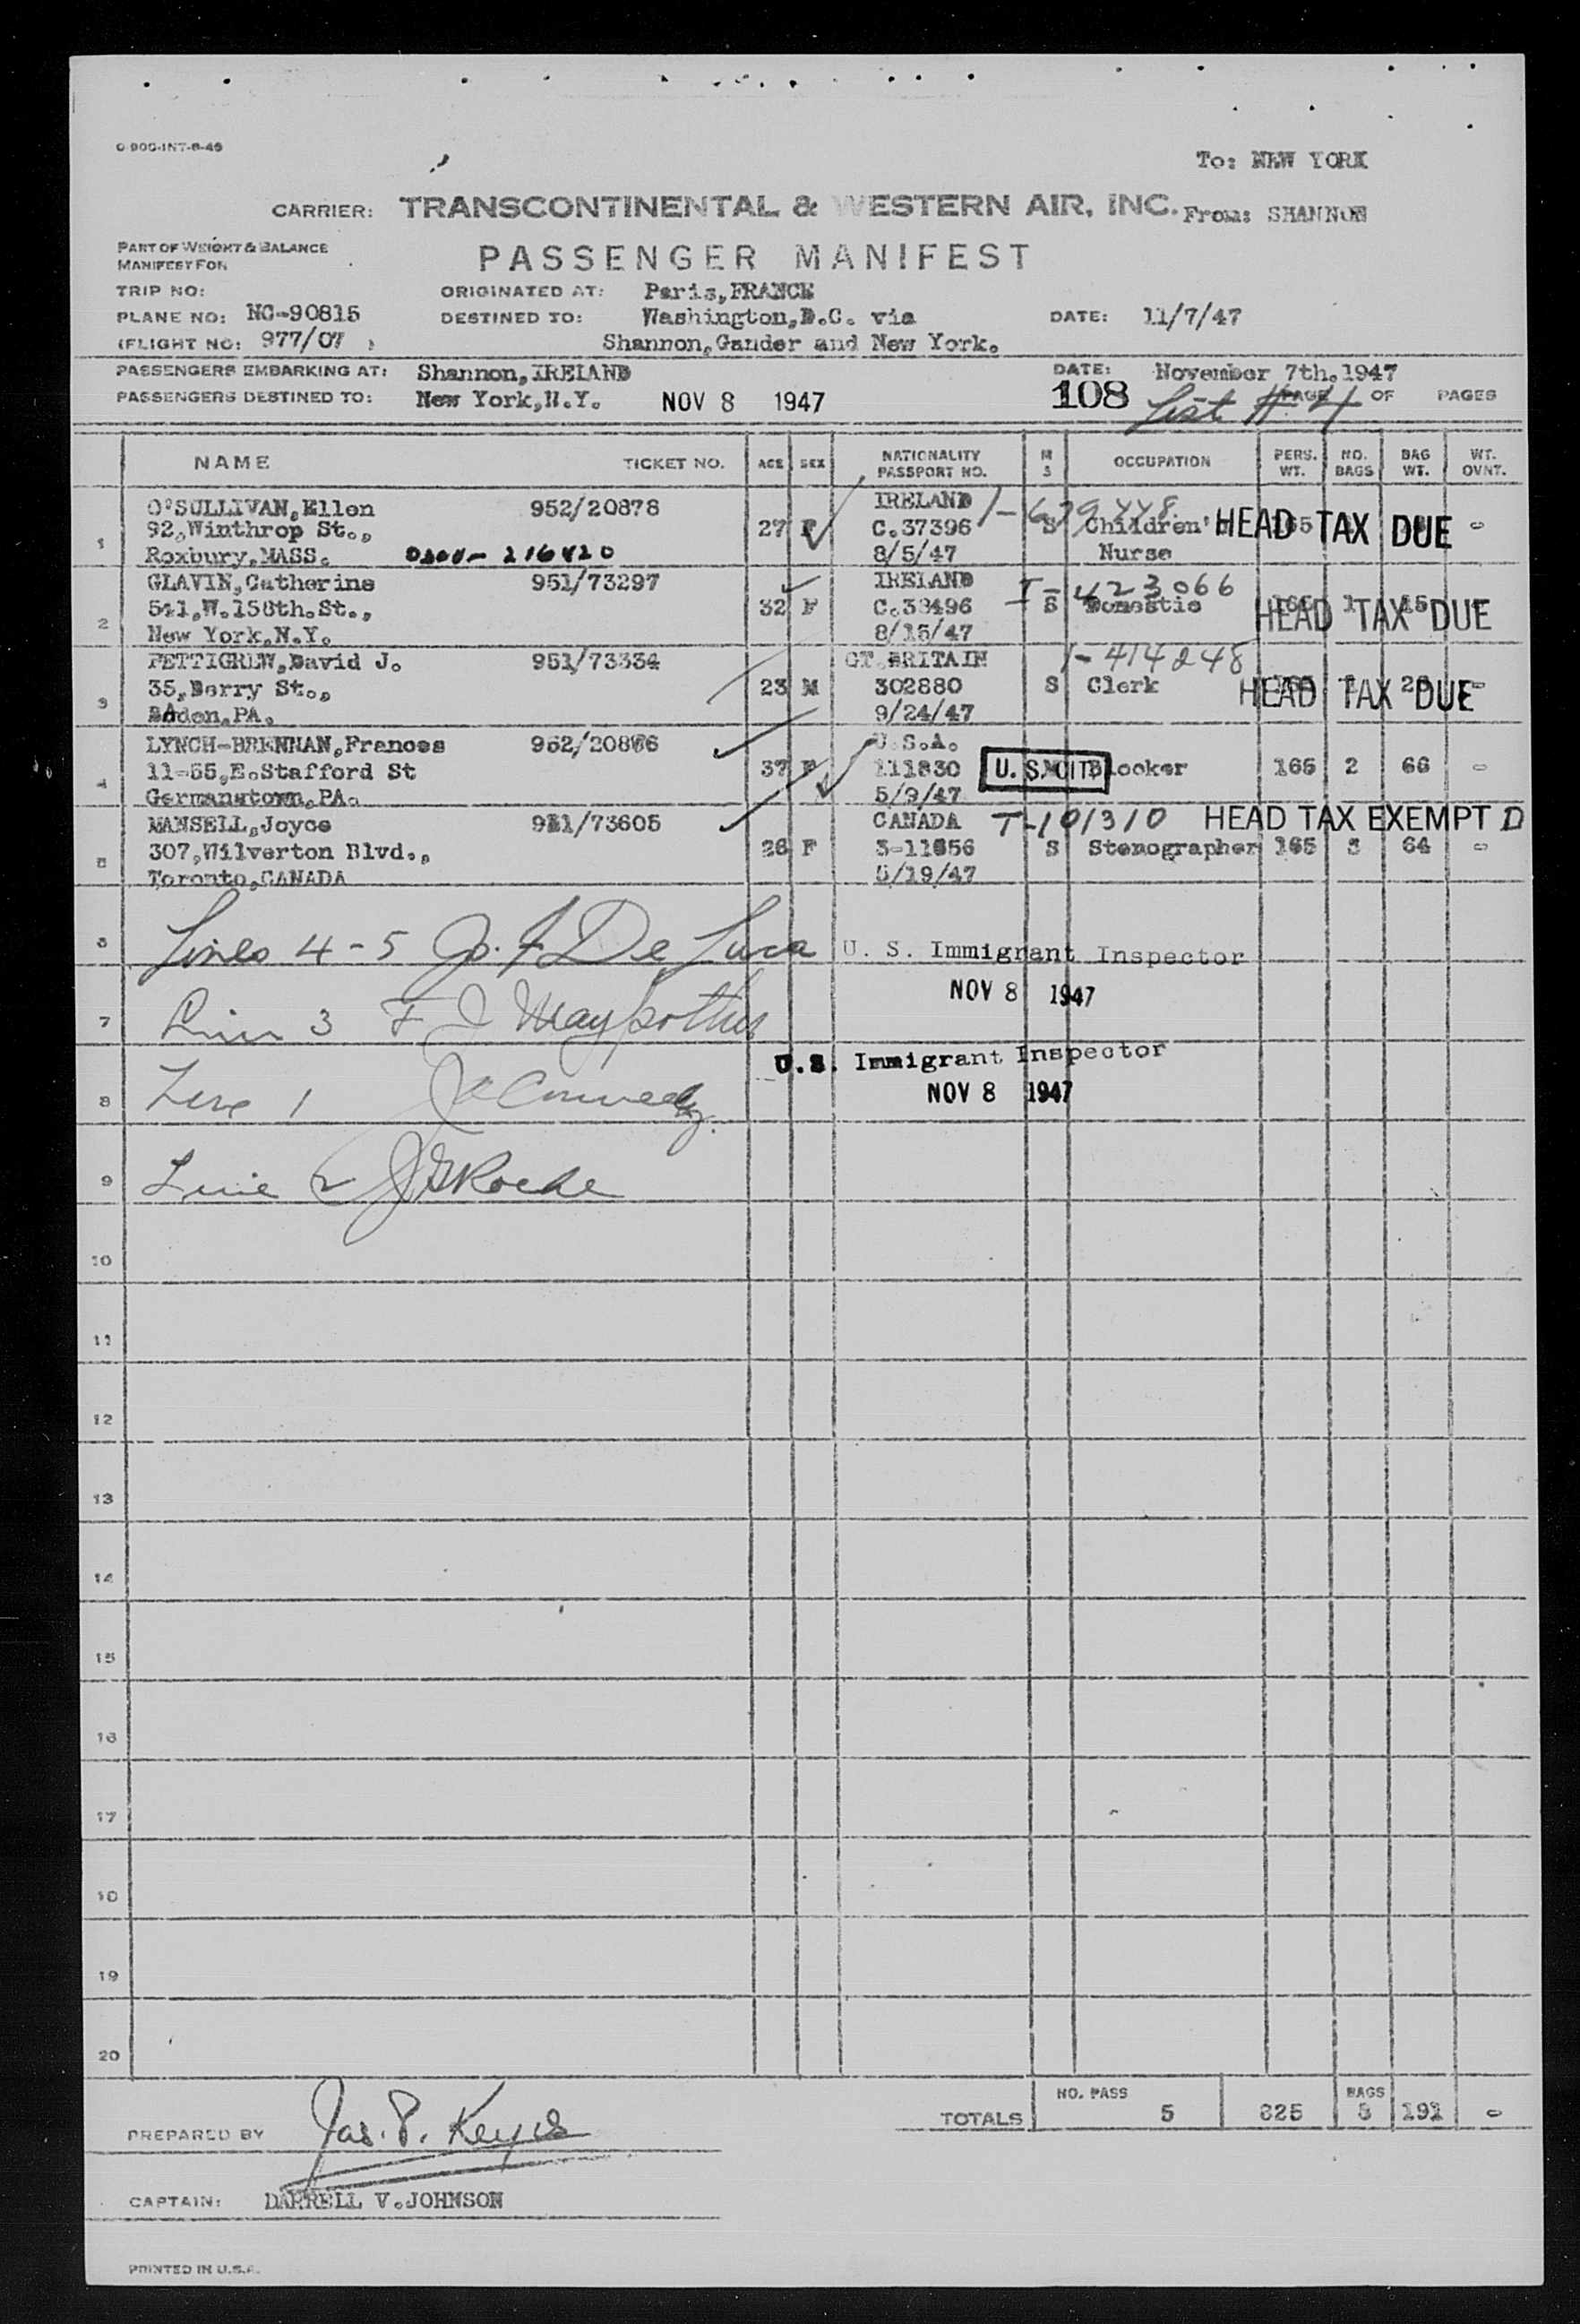 O-900-INT-8-46
To: NEW YORK
CARRIER: TRANSCONTINENTAL & WESTERN AIR, INC. From: SHANNON
PART OF WEIGHT & BALANCE
MANIFEST FOR
PASSENGER MANIFEST
TRIP NO: ORIGINATED AT: Paris,FRANCE
PLANE NO: NC-90815 DESTINED TO: Washington,D.C. via DATE: 11/7/47
(FLIGHT NO: 977/07 ) Shannon,Gander and New York.
PASSENGERS EMBARKING AT: Shannon,IRELAND DATE: November 7th.1947
PASSENGERS DESTINED TO: New York,N.Y. NOV 8 1947 108 List # 4 PAGE OF PAGES
NAME TICKET NO. AGE SEX NATIONALITY PASSPORT NO. M S OCCUPATION PERS. WT. NO. BAGS BAG WT. WT. OVNT.
O'SULLIVAN,Ellen 952/20878 IRELAND
1 92,Winthrop St., 27 F C.37396 S Children's HEAD TAX DUE -
Roxbury,MASS. 8/5/47 Nurse
GLAVIN,Catherine 951/73297 IRELAND I-423066
2 541,W.158th.St., 32 F C.38496 S Domestic 165 1 15 HEAD TAX DUE
New York,N.Y. 8/15/47
PETTIGREW,David J. 951/73334 GT.BRITAIN I-414248
3 35,Berry St., 23 M 302880 S Clerk HEAD TAX DUE -
Baden,PA. 9/24/47
LYNCH-BRENNAN,Frances 952/20876 U.S.A.
4 11-55,E.Stafford St 37 F 111830 U. S. CIT Blocker 165 2 66 -
Germanstown,PA. 5/9/47
MANSELL,Joyce 951/73605 CANADA T-101310 HEAD TAX EXEMPT D
5 307,Wilverton Blvd., 26 F 3-11656 S Stenographer 165 3 64 -
Toronto,CANADA 5/19/47
6 Lines 4-5 De Luca U. S. Immigrant Inspector
NOV 8 1947
7 Line 3 F J
U.S. Immigrant Inspector
8 Line 1 NOV 8 1947
9 Line 2 Roche
10
11
12
13
14
15
16
17
18
19
20
TOTALS NO. PASS 5 825 BAGS 8 191 -
PREPARED BY Jas. P. Keyes
CAPTAIN: DARRELL V.JOHNSON
PRINTED IN U.S.A.